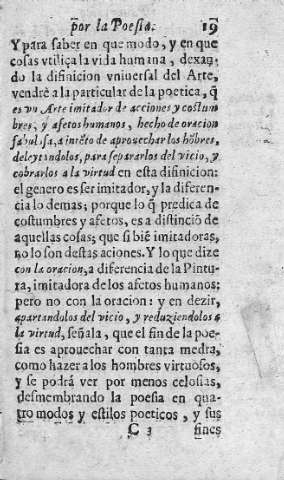 por la Poesia. 19
Y para saber en que modo, y en que
cosas vtiliça la vida humana, dexan-
do la difinicion vniuersal del Arte,
vendrè a la particular de la poetica, q̃
es vn Arte imitador de acciones y costum
bres, y afetos humanos, hecho de oracion
fabulosa, a intẽto de aprouechar los hõbres,
deleytandolos, para separarlos del vicio, y
cobrarlos a la virtud en esta difinicion:
el genero es ser imitador, y la diferen
cia lo demas; porque lo q̃ predica de
costumbres y afetos, es a distinciõ de
aquellas cosas; que si biẽ imitadoras,
no lo son destas aciones. Y lo que dize
con la oracion, a diferencia de la Pintu-
ra, imitadora de los afetos humanos:
pero no con la oracion: y en dezir,
apartandolos del vicio, y reduziendolos a
la virtud, señala, que el fin de la poe-
sia es aprouechar con tanta medra,
como hazer a los hombres virtuosos,
y se podrá ver por menos celosias,
desmembrando la poesia en qua-
tro modos y estilos poeticos, y sus
C 3 fines